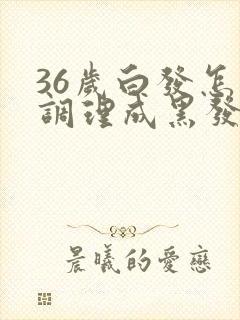 36歲白發怎
調理成黑發
晨曦的愛戀